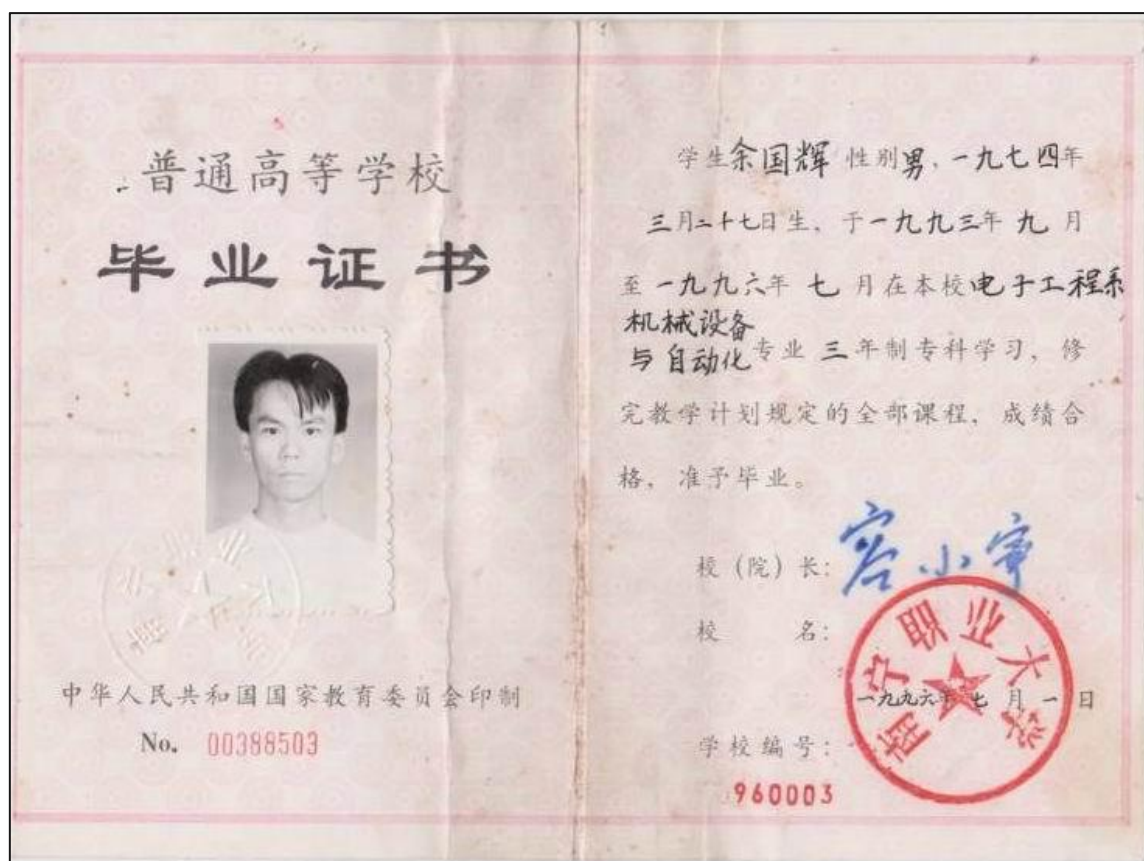 普通高等学校
毕业证书
中华人民共和国国家教育委员会印制
No. 00388503
学生余国辉 性别男，一九七四年
三月二十七日生，于一九九三年九月
至一九九六年七月在本校电子工程系
机械设备
与自动化专业三年制专科学习，修
完教学计划规定的全部课程，成绩合
格，准予毕业。
校（院）长：
校 名：
南宁职业大学
一九九六年七月一日
学校编号：
960003